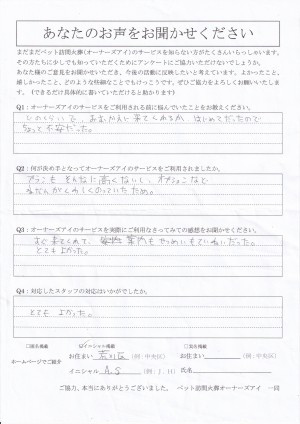 あなたのお声をお聞かせください
まだまだペット訪問火葬(オーナーズアイ)のサービスを知らない方がたくさんいらっしゃいます。
その方たちにも少しでも知っていただくためにアンケートにご協力いただけないでしょうか。
あなた様のご意見をお聞かせいただき、今後の活動に反映したいと考えています。よかったこと、
嬉しかったこと、どのような些細なことでもけっこうです。ぜひご協力をよろしくお願いいたします。
(できるだけ具体的に書いていただけると助かります)
Q1:オーナーズアイのサービスをご利用される前に悩んでいたことをお教えください。
どのくらいで、おむかえに来てくれるか、はじめてだったので
ちょっと不安だった。
Q2:何が決め手となってオーナーズアイのサービスをご利用されましたか。
プランも そんなに高くないし、オプションなど
ねだんがくわしくのっていたため。
Q3:オーナーズアイのサービスを実際にご利用なさってみての感想をお聞かせください。
すぐ来てくれて、案内もせつめいもていねいだった。
とてもよかった。
Q4:対応したスタッフの対応はいかがでしたか。
とても よかった。
□匿名掲載 ☑イニシャル掲載 □実名掲載
ホームページでご紹介
お住まい 荒川区 (例:中央区) お住まい (例:中央区)
イニシャル A.S (例:I.H) 氏名
ご協力、本当にありがとうございました。 ペット訪問火葬オーナーズアイ 一同